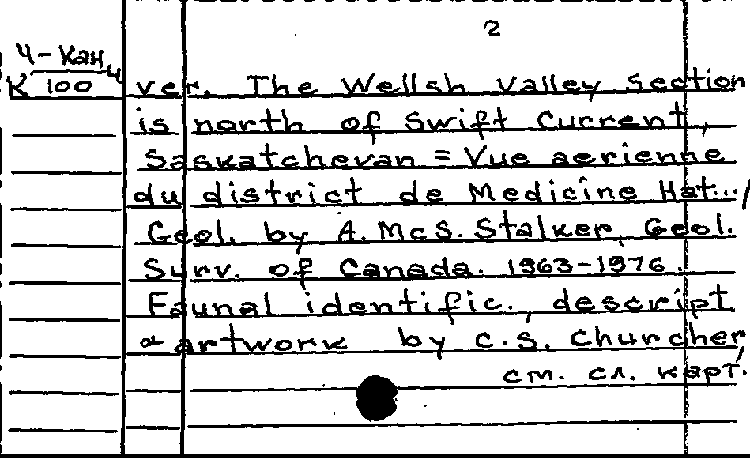 2
4-Кан.
K 100 4
ver. The Wellsh Valley section
is north of Swift Current,
Saskatchevan = Vue aerienne
du district de Medicine Hat.../
Geol. by A. McS. Stalker, Geol.
Surv. of Canada. 1963-1976.
Faunal identific., descript
& artwork by C.S. Churcher,
см. сл. карт.